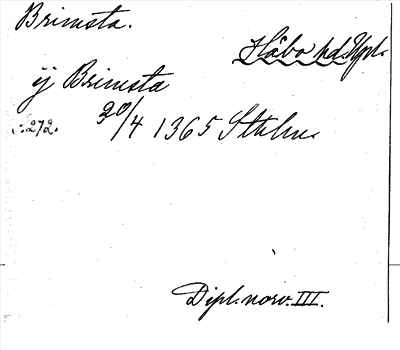 Brimsta.
Håbo hd. Upl.
ij Brimsta
s. 272.
20/4 1365 Sthlm.
Dipl. norv. III.